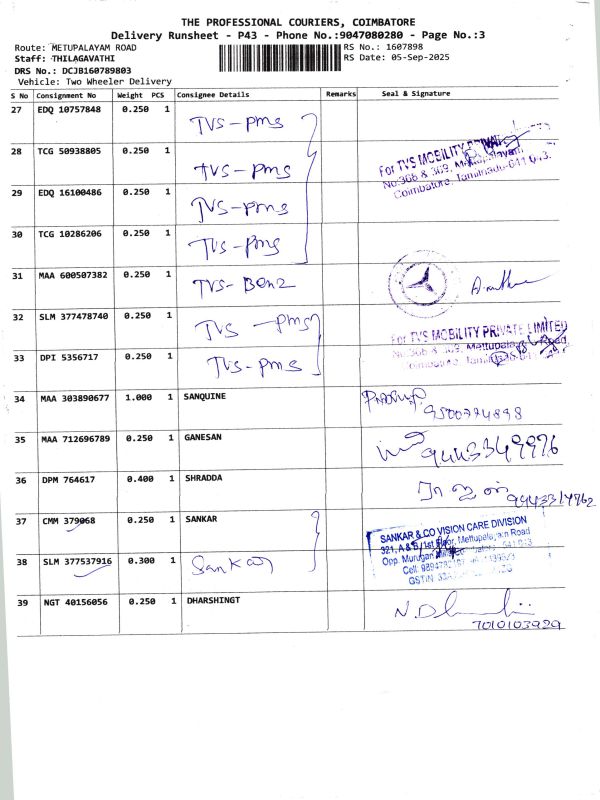 THE PROFESSIONAL COURIERS, COIMBATORE
Delivery Runsheet - P43 - Phone No.:9047080280 - Page No.:3
Route: METUPALAYAM ROAD
RS No.: 1607898
Staff: THILAGAVATHI
RS Date: 05-Sep-2025
DRS No.: DCJB160789803
Vehicle: Two Wheeler Delivery
S No Consignment No Weight PCS Consignee Details Remarks Seal & Signature
27 EDQ 10757848 0.250 1 TVS - Pms
28 TCG 50938805 0.250 1 TVS - Pms
For TVS MOBILITY PRIVATE
No:368 & 369, Mettupalayam
Coimbatore, Tamilnadu-641 043.
29 EDQ 16100486 0.250 1 TVS - Pms
30 TCG 10286206 0.250 1 TVS - Pms
31 MAA 600507382 0.250 1 TVS - Benz
32 SLM 377478740 0.250 1 TVS - Pms
For TVS MOBILITY PRIVATE LIMITED
No:368 & 369, Mettupalayam Road,
33 DPI 5356717 0.250 1 TVS - Pms
34 MAA 303890677 1.000 1 SANQUINE
35 MAA 712696789 0.250 1 GANESAN
36 DPM 764617 0.400 1 SHRADDA
37 CMM 379068 0.250 1 SANKAR
SANKAR & CO VISION CARE DIVISION
321, A & B, 1st Floor, Mettupalayam Road
Opp. Murugan
38 SLM 377537916 0.300 1 Sankar
Cell:
GSTIN:
39 NGT 40156056 0.250 1 DHARSHINGT
7010103929